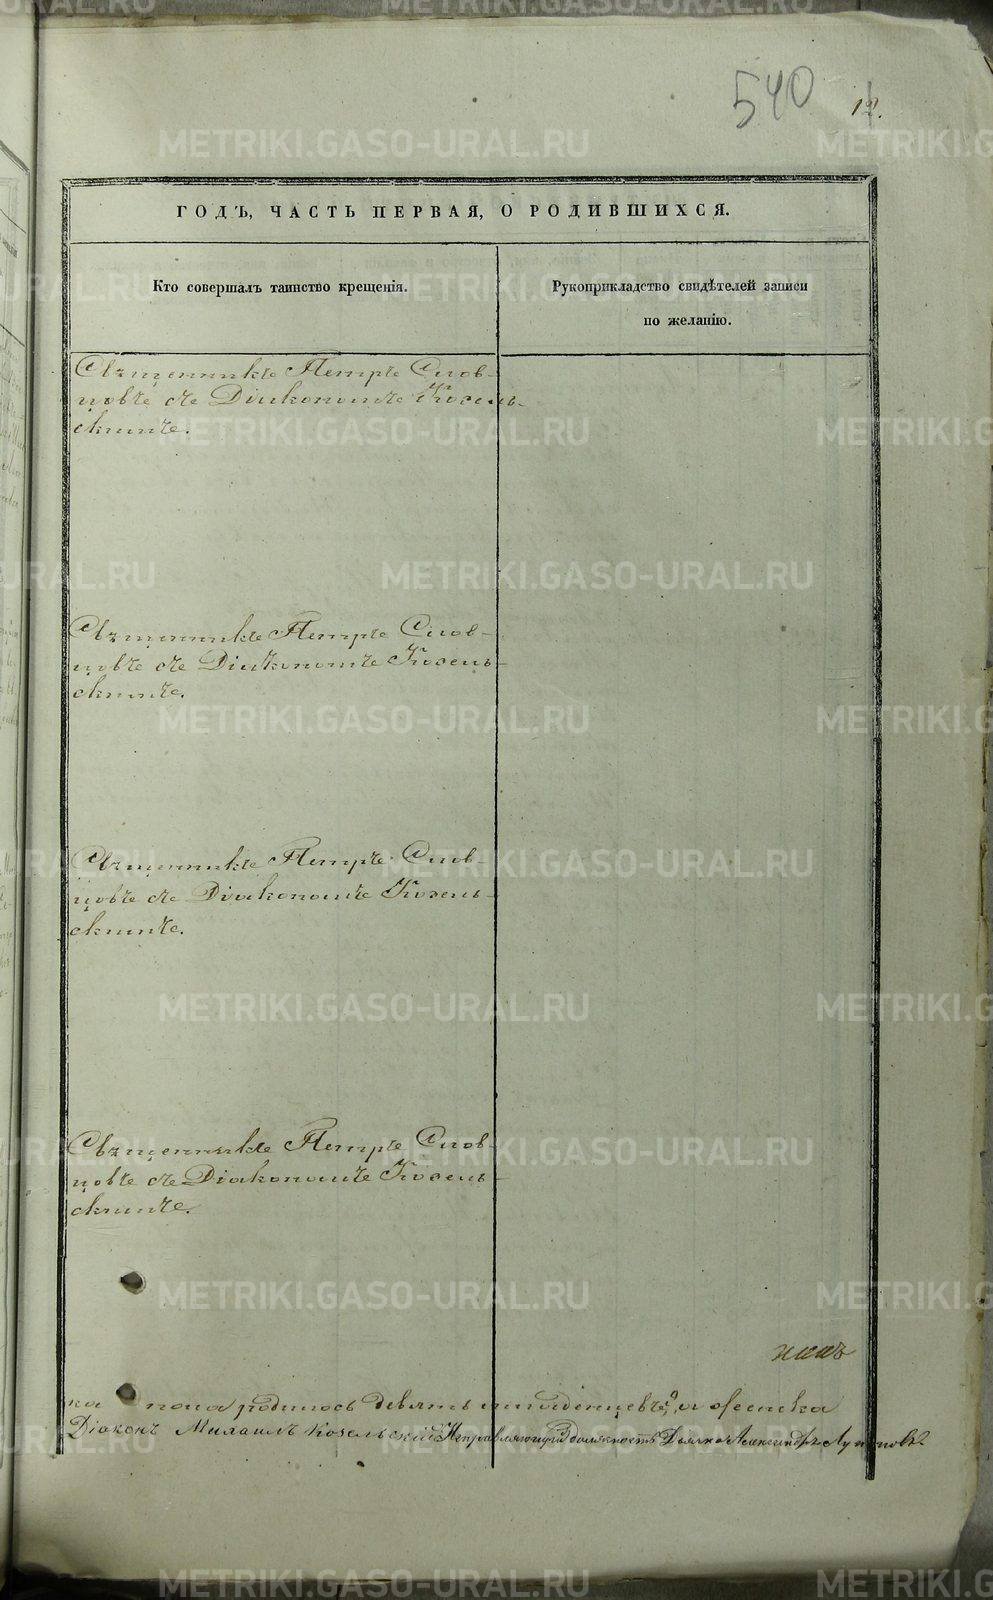 540
12.
ГОДЪ, ЧАСТЬ ПЕРВАЯ, О РОДИВШИХСЯ.
Кто совершалъ таинство крещенія.
Рукоприкладство свидѣтелей записи
по желанію.
Священникъ Петръ Слов-
цовъ съ Діакономъ Козель-
скимъ.
Священникъ Петръ Слов-
цовъ съ Діакономъ Козель-
скимъ.
Священникъ Петръ Слов-
цовъ съ Діакономъ Козель-
скимъ.
Священникъ Петръ Слов-
цовъ съ Діакономъ Козель-
скимъ.
пола родилось девять младенцевъ, а женска
Діаконъ Михаилъ Козельскій Исправляющій должность Дьячка Александръ
METRIKI.GASO-URAL.RU